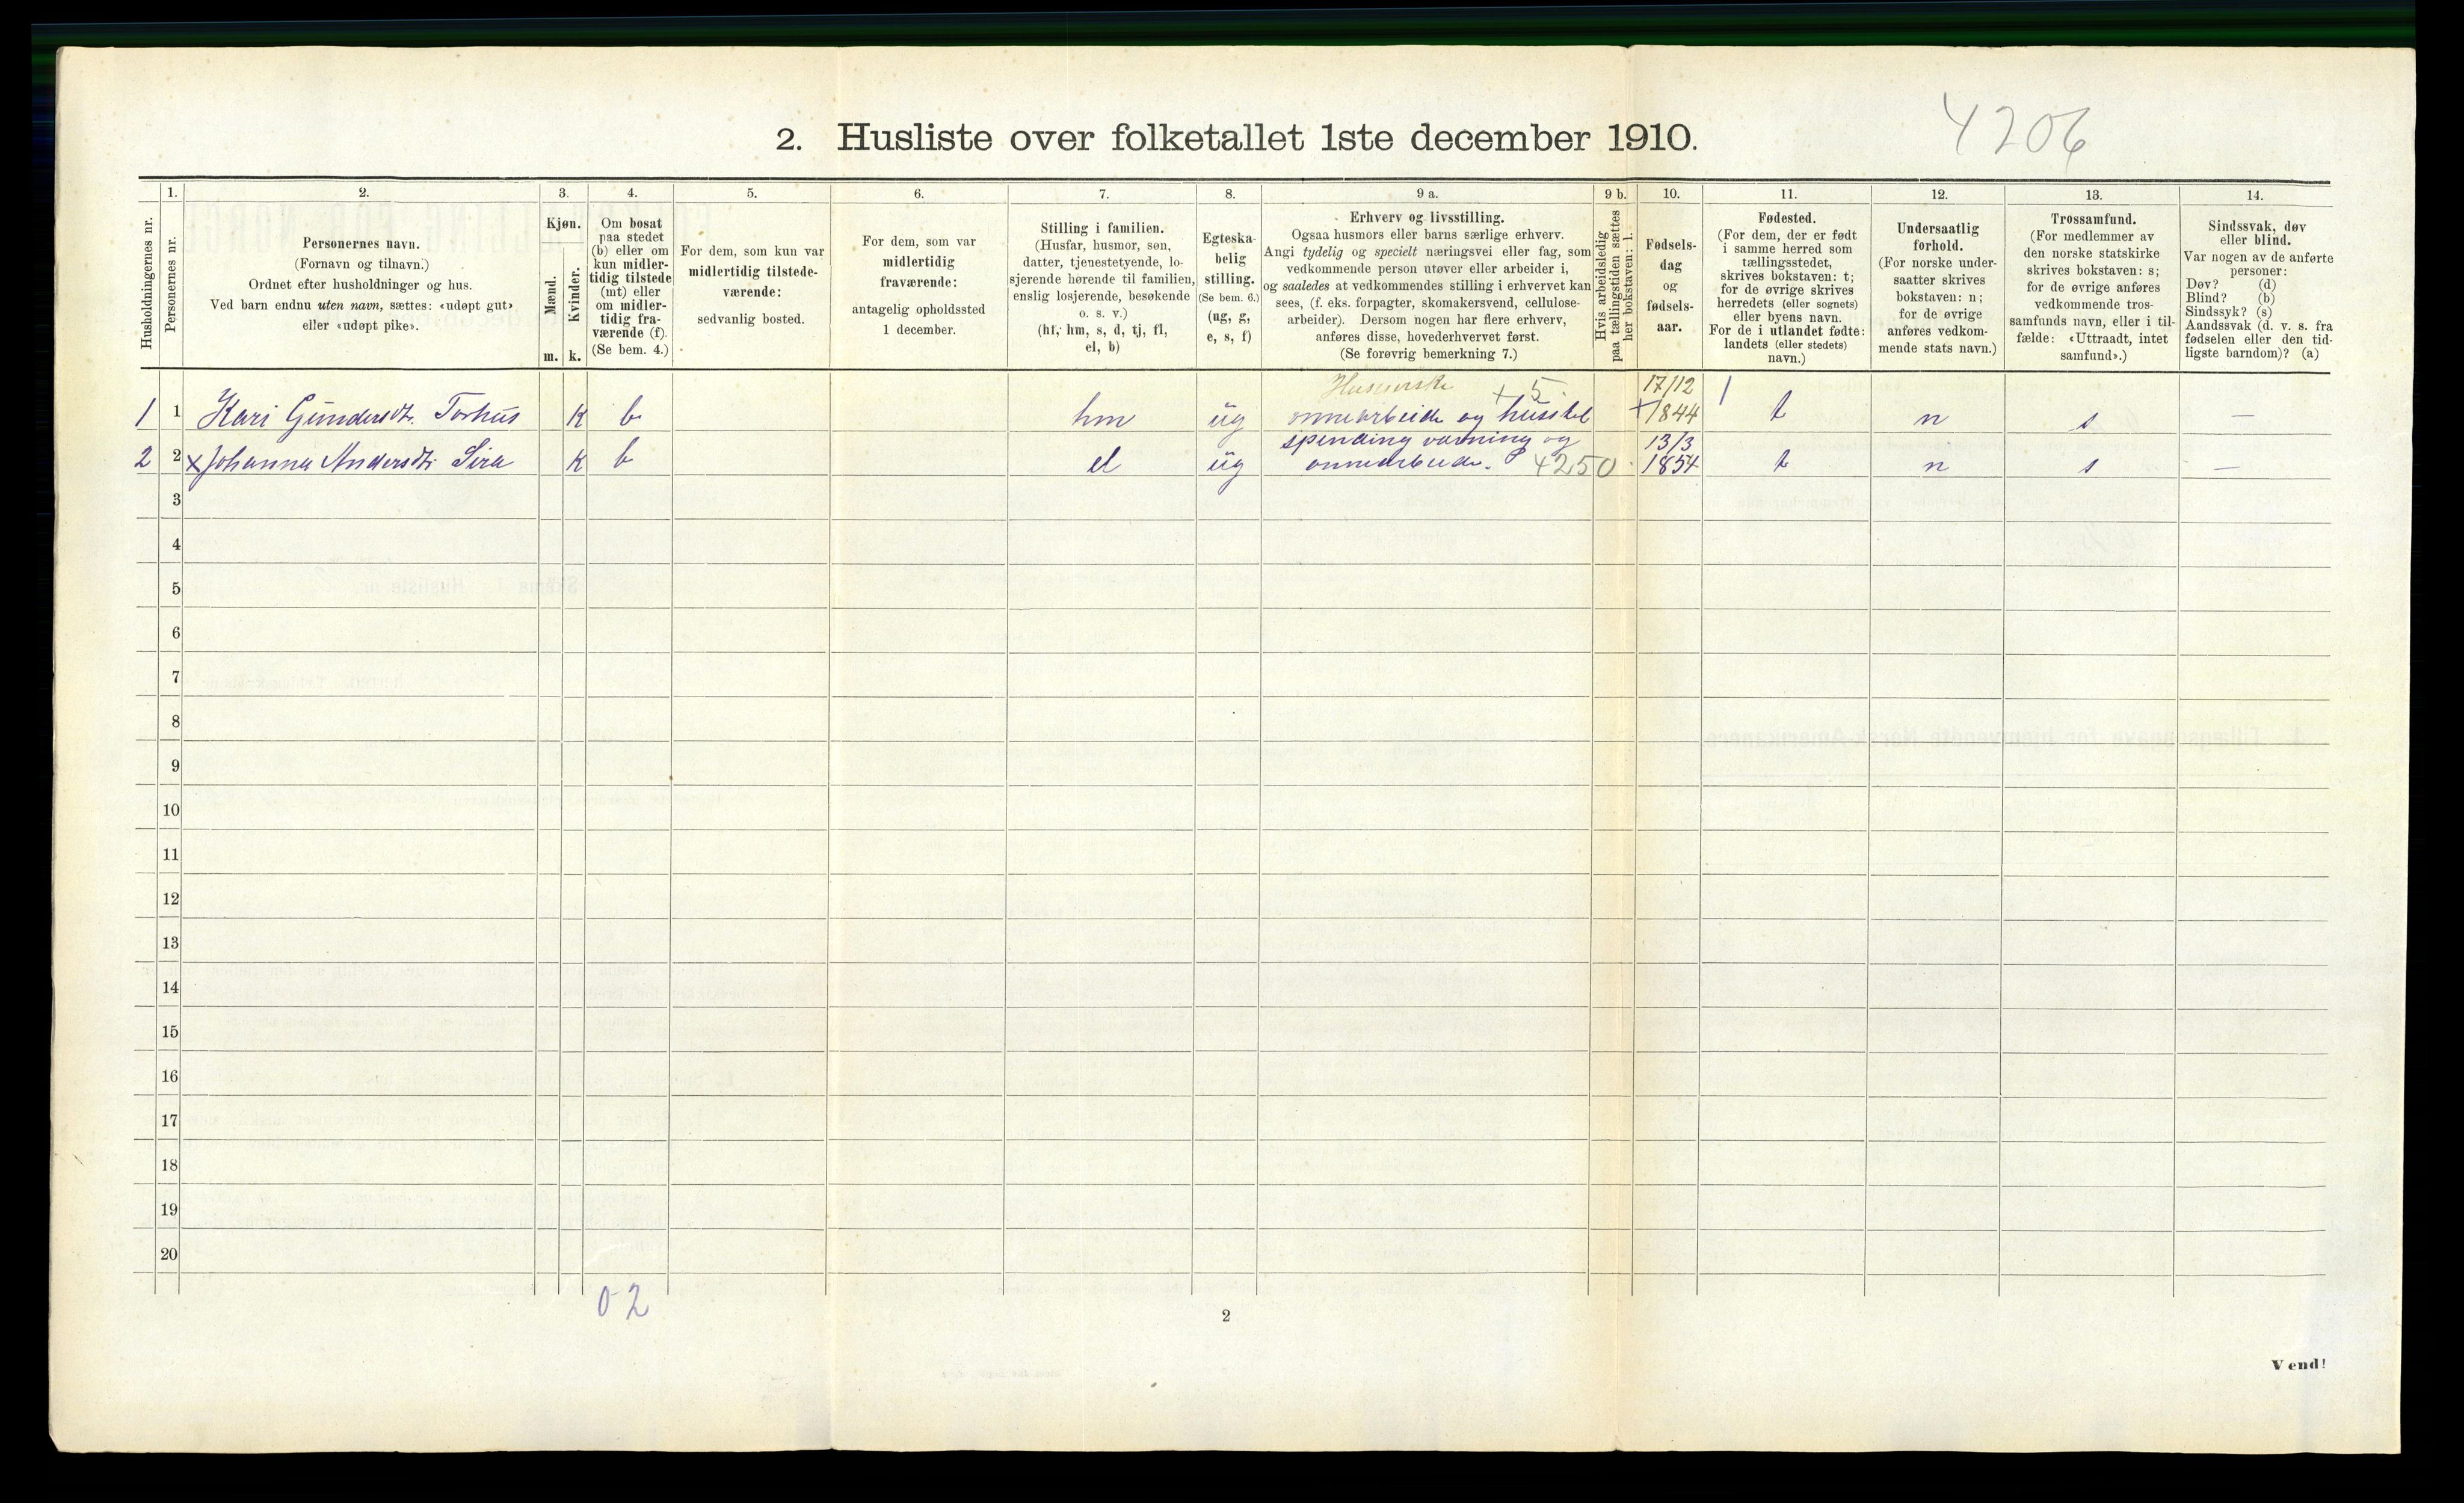 4206
2. Husliste over folketallet 1ste december 1910.
Husholdningernes nr.
1.
Personernes nr.
2.
Personernes navn.
(Fornavn og tilnavn.)
Ordnet efter husholdninger og hus.
Ved barn endnu uten navn, sættes: «udøpt gut»
eller «udøpt pike».
3.
Kjøn.
Mænd.
m.
Kvinder.
k.
4.
Om bosat
paa stedet
(b) eller om
kun midler-
tidig tilstede
(mt) eller
om midler-
tidig fra-
værende (f).
(Se bem. 4.)
5.
For dem, som kun var
midlertidig tilstede-
værende:
sedvanlig bosted.
6.
For dem, som var
midlertidig
fraværende:
antagelig opholdssted
1 december.
7.
Stilling i familien.
(Husfar, husmor, søn,
datter, tjenestetyende, lo-
sjerende hørende til familien,
enslig losjerende, besøkende
o. s. v.)
(hf, hm, s, d, tj, fl,
el, b)
8.
Egteska-
belig
stilling.
(Se bem. 6.)
(ug, g,
e, s, f)
9 a.
Erhverv og livsstilling.
Ogsaa husmors eller barns særlige erhverv.
Angi tydelig og specielt næringsvei eller fag, som
vedkommende person utøver eller arbeider i,
og saaledes at vedkommendes stilling i erhvervet kan
sees, (f. eks. forpagter, skomakersvend, cellulose-
arbeider). Dersom nogen har flere erhverv,
anføres disse, hovederhvervet først.
(Se forøvrig bemerkning 7.)
9 b.
Hvis arbeidsledig
paa tællingstiden sættes
her bokstaven: l.
10.
Fødsels-
dag
og
fødsels-
aar.
11.
Fødested.
(For dem, der er født
i samme herred som
tællingsstedet,
skrives bokstaven: t;
for de øvrige skrives
herredets (eller sognets)
eller byens navn.
For de i utlandet fødte:
landets (eller stedets)
navn.)
12.
Undersaatlig
forhold.
(For norske under-
saatter skrives
bokstaven: n;
for de øvrige
anføres vedkom-
mende stats navn.)
13.
Trossamfund.
(For medlemmer av
den norske statskirke
skrives bokstaven: s;
for de øvrige anføres
vedkommende tros-
samfunds navn, eller i til-
fælde: «Uttraadt, intet
samfund».)
14.
Sindssvak, døv
eller blind.
Var nogen av de anførte
personer:
Døv? (d)
Blind? (b)
Sindssyk? (s)
Aandssvak (d. v. s. fra
fødselen eller den tid-
ligste barndom)? (a)
+ 5 17/12
1 1 Kari Gundersdt. Torhus K b hm üg onnearbeide og husstel + 1844 t n s —
spinding vævning og 13/3
2 2 x Johanna Andersdt. Sira K b el üg onnearbeide. 4250 1854 t n s —
3
4
5
6
7
8
9
10
11
12
13
14
15
16
17
18
19
20
0 2
2
Vend!